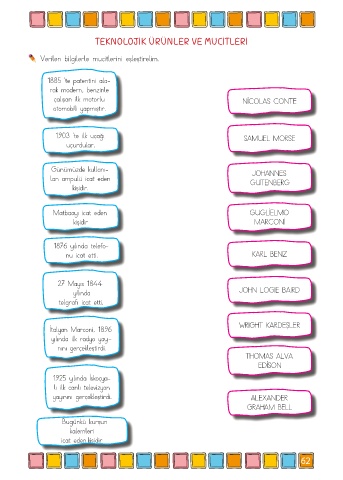 TEKNOLOJİK ÜRÜNLER VE MUCİTLERİ
Verilen bilgilerle mucitlerini eşleştirelim.
1885 'te patentini ala-
rak modern, benzinle
çalışan ilk motorlu
otomobili yapmıştır.
1903 'te ilk uçağı
uçurdular.
Günümüzde kullanı-
lan ampulü icat eden
kişidir.
Matbaayı icat eden
kişidir.
1876 yılında telefo-
nu icat etti.
27 Mayıs 1844
yılında
telgrafı icat etti.
İtalyan Marconi, 1896
yılında ilk radyo yay-
nını gerçekleştirdi.
1925 yılında İskoçya-
lı ilk canlı televizyon
yayını gerçekleştirdi.
Bugünkü kurşun
kalemleri
icat eden kişidir.
NICOLAS CONTE
SAMUEL MORSE
JOHANNES
GUTENBERG
GUGLIELMO
MARCONI
KARL BENZ
JOHN LOGIE BAIRD
WRIGHT KARDEŞLER
THOMAS ALVA
EDİSON
ALEXANDER
GRAHAM BELL
62